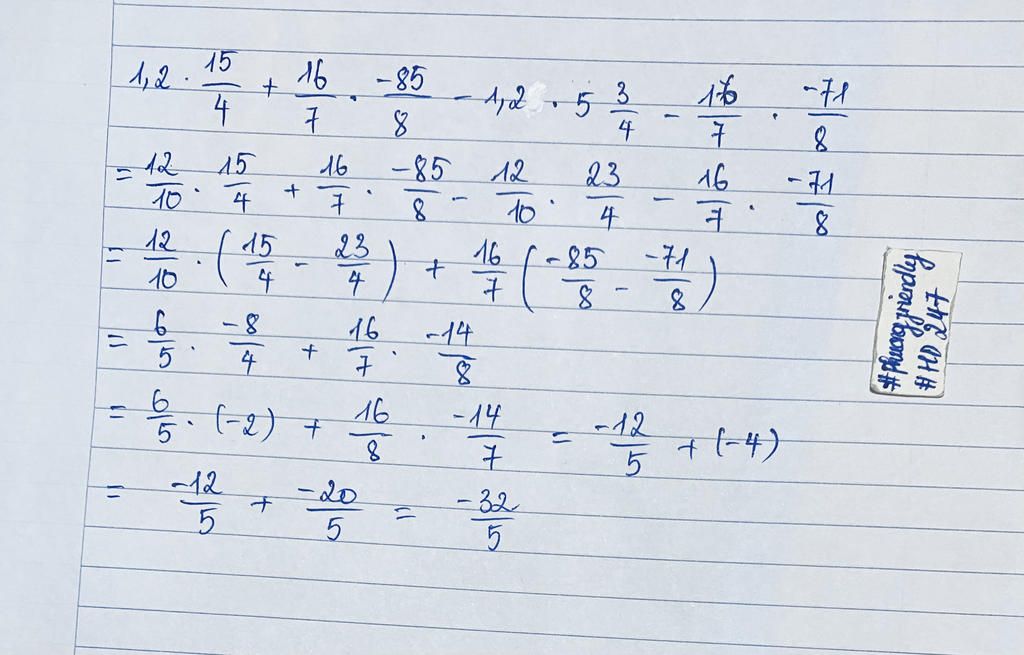 1,2 · 15/4 + 16/7 · -85/8 - 1,2 · 5 3/4 - 16/7 · -71/8
= 12/10 · 15/4 + 16/7 · -85/8 - 12/10 · 23/4 - 16/7 · -71/8
= 12/10 · (15/4 - 23/4) + 16/7 (-85/8 - -71/8)
= 6/5 · -8/4 + 16/7 · -14/8
= 6/5 · (-2) + 16/8 · -14/7 = -12/5 + (-4)
= -12/5 + -20/5 = -32/5